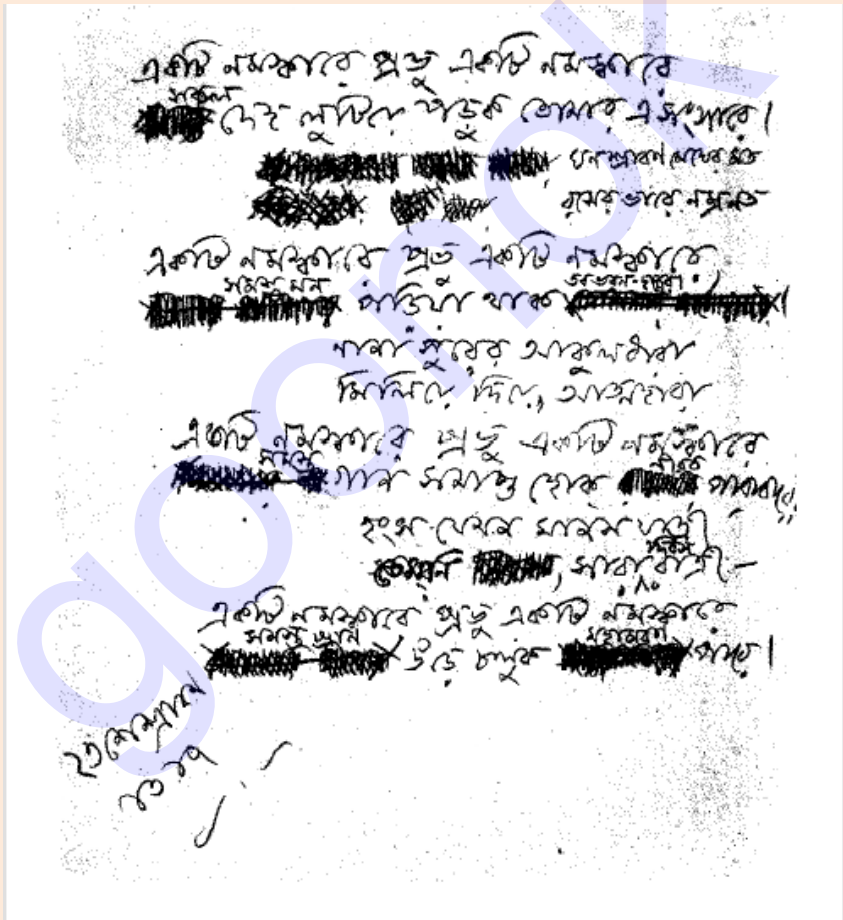 একটি নমস্কারে প্রভু একটি নমস্কারে
সকল
দেহ লুটিয়ে পড়ুক তোমার এ সংসারে।
ঘন শ্রাবণ মেঘের মত
রসের ভারে নম্রনত
একটি নমস্কারে প্রভু একটি নমস্কারে
সমস্ত মন তব ভবন-দ্বারে
পড়িয়া থাক
নানা সুরের আকুলধারা
মিলিয়ে দিয়ে, আত্মহারা
একটি নমস্কারে প্রভু একটি নমস্কারে
সমস্ত নীরব
গান সমাপ্ত হোক পারাবারে
হংস যেমন মানসযাত্রী
তেমনি সারা রাত্রি
একটি নমস্কারে প্রভু একটি নমস্কারে
সমস্ত প্রাণ মহামরণ
উড়ে চলুক পারে।
২৩শে শ্রাবণ
১৩১৭
goonok